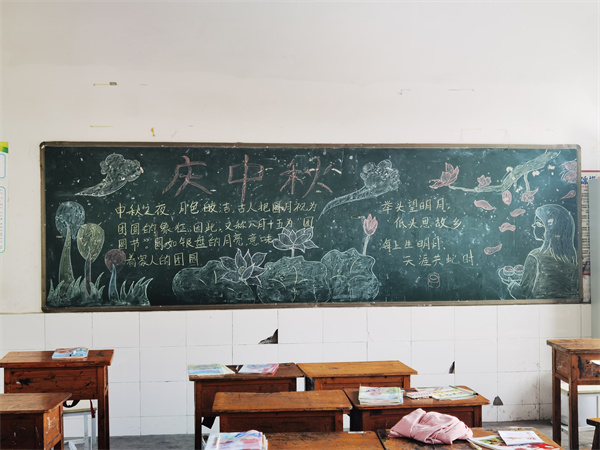 庆中秋
中秋之夜，月色皎洁，古人把圆月视为
团圆的象征，因此，又称八月十五为"团
圆节"圆如银盘的月亮，意味
着家人的团圆
举头望明月，
低头思故乡
海上生明月，
天涯共此时